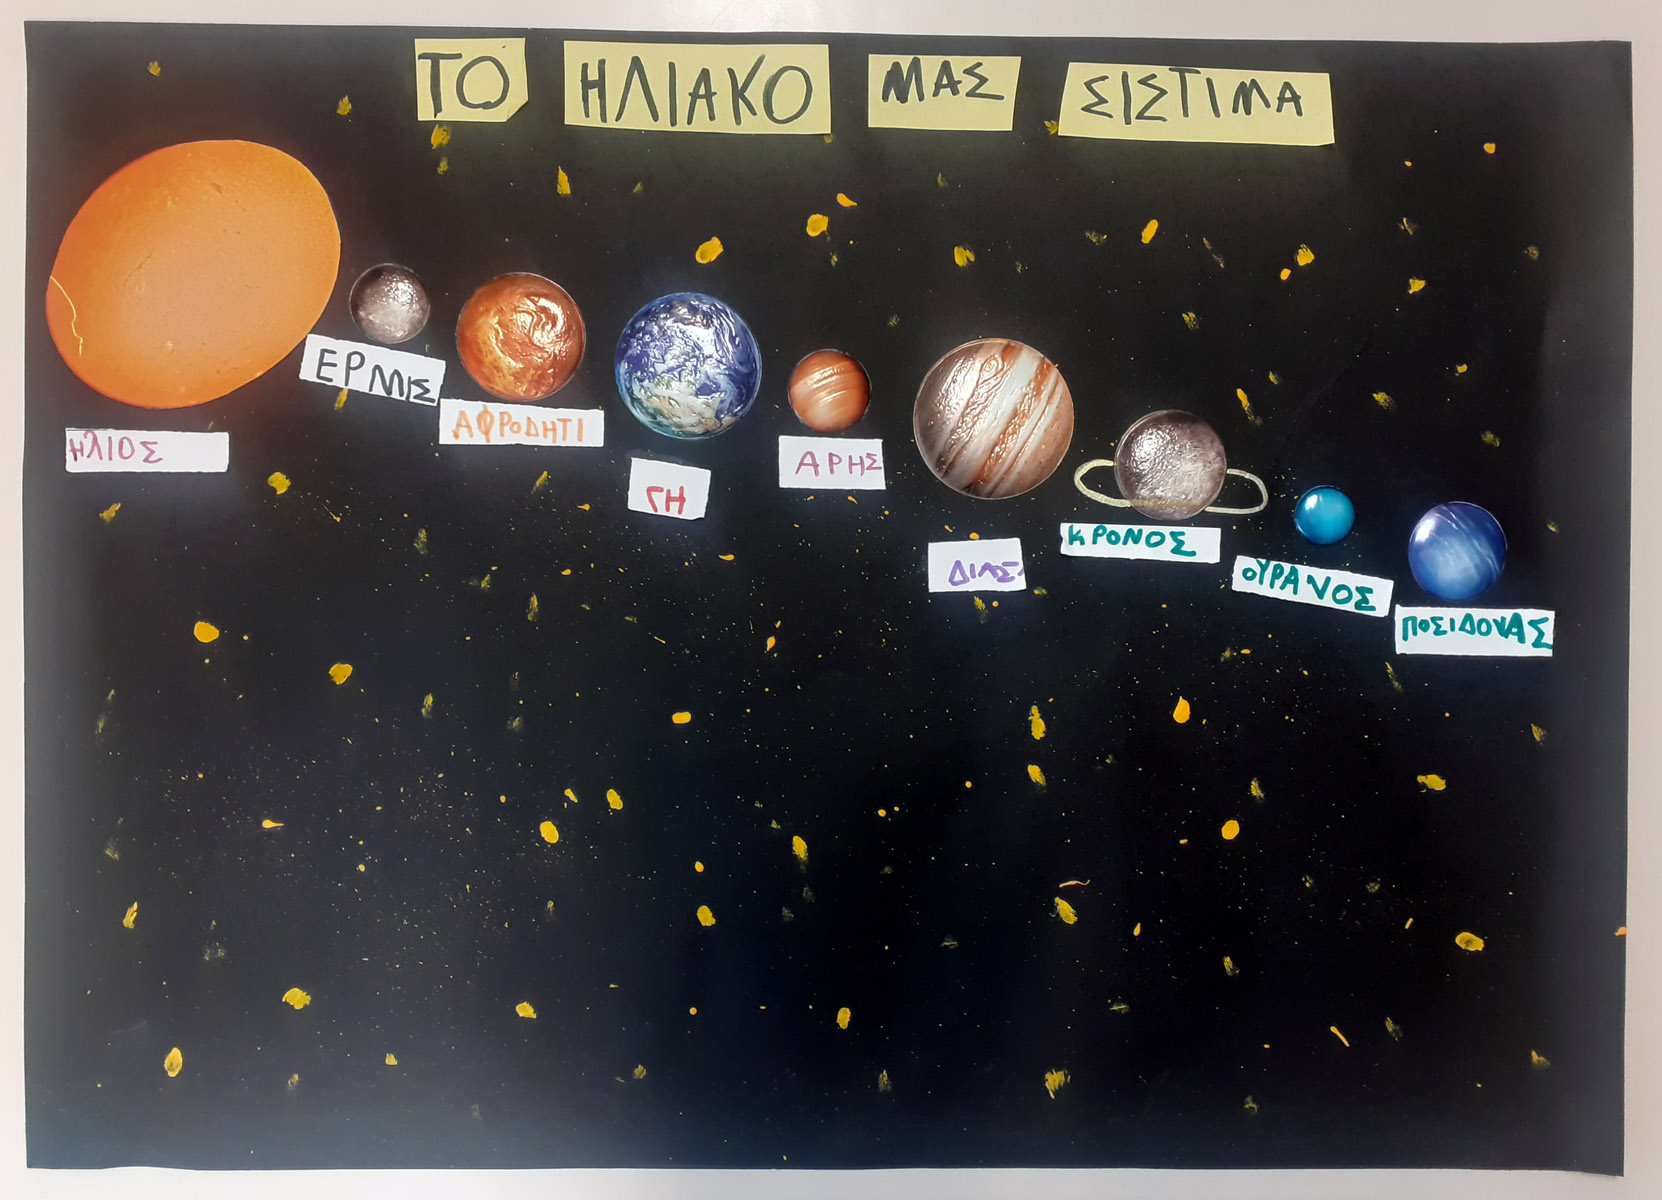 ΤΟ ΗΛΙΑΚΟ ΜΑΣ ΣΙΣΤΙΜΑ
ΗΛΙΟΣ
ΕΡΜΙΣ
ΑΦΡΟΔΗΤΙ
ΓΗ
ΑΡΗΣ
ΔΙΑΣ
ΚΡΟΝΟΣ
ΟΥΡΑΝΟΣ
ΠΟΣΙΔΟΝΑΣ